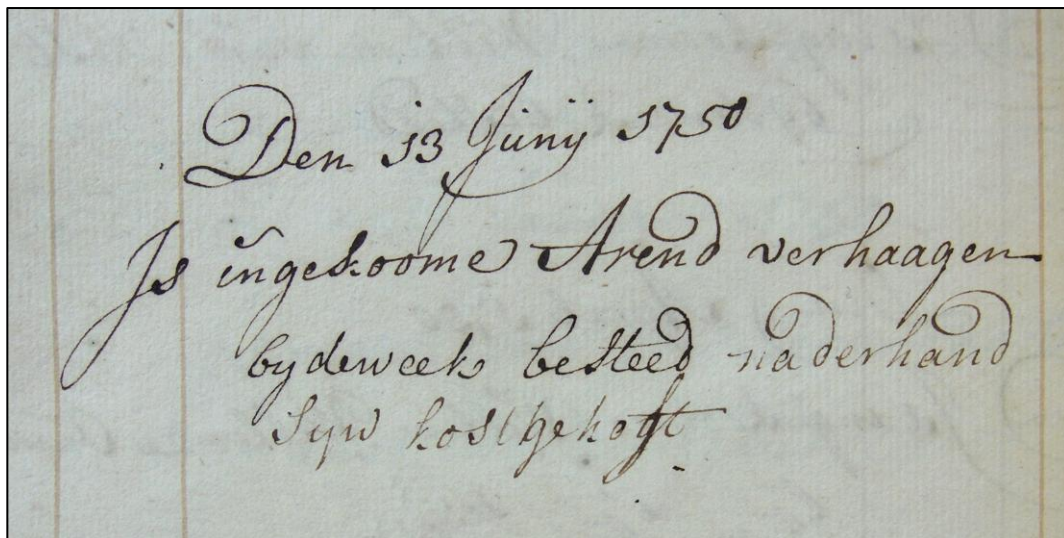 Den 13 Junij 1750
Is ingekoome Arend verhaagen
by de week besteed naderhand
Syn kost gekoft